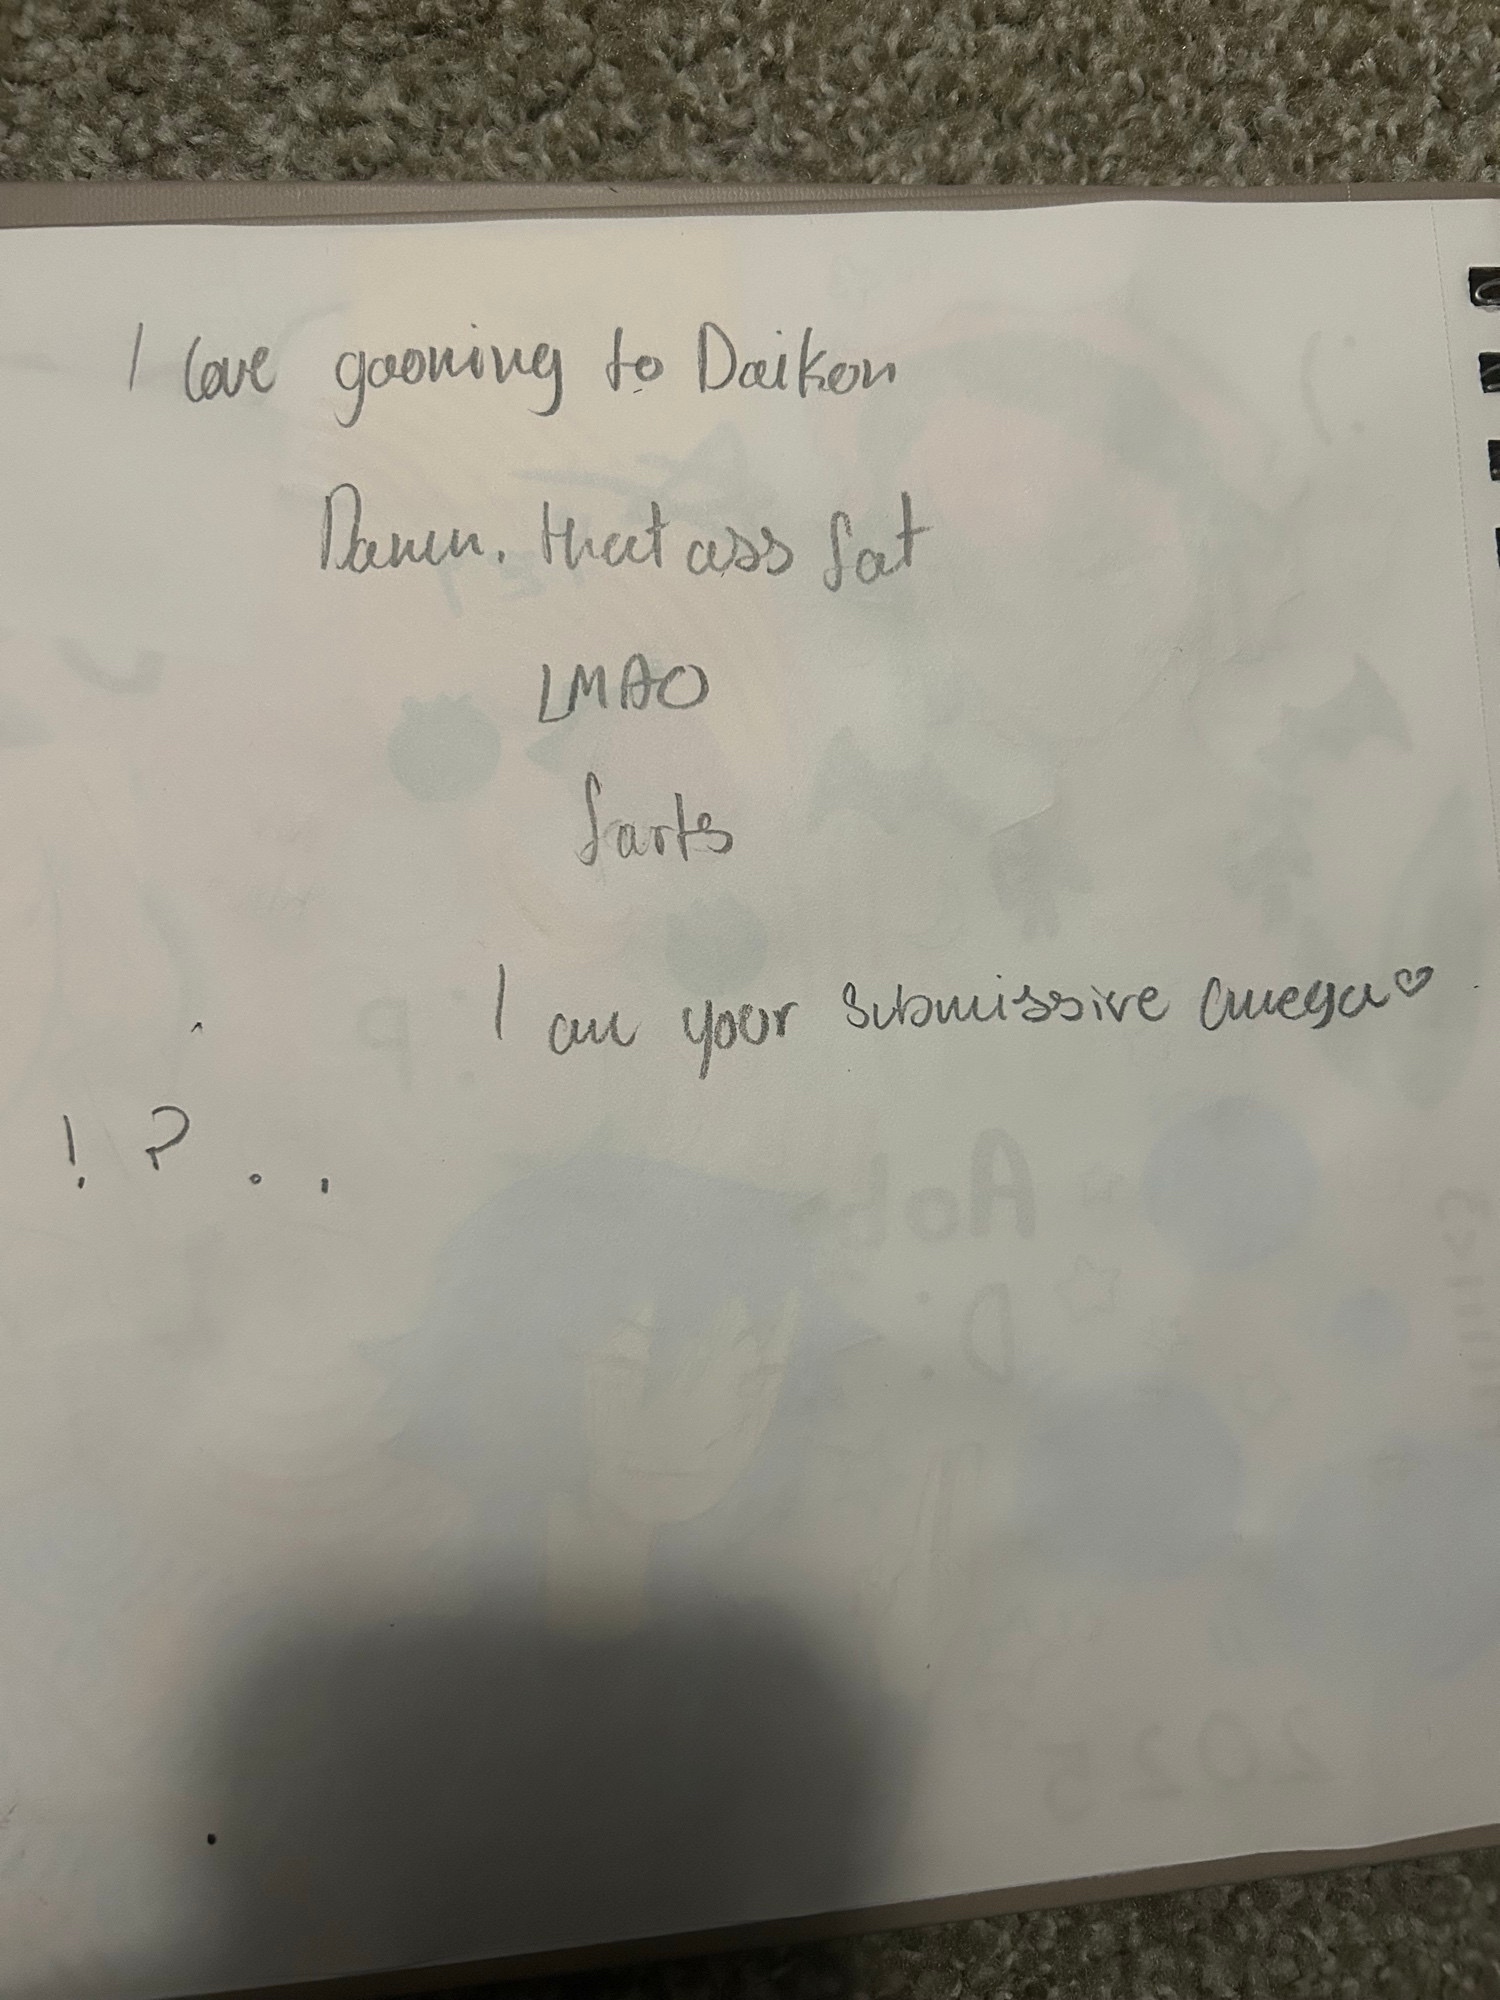 I love gooning to Daikon
Damn, that ass fat
LMAO
farts
I am your submissive omega♡
! ? . .
:P
D:
2025